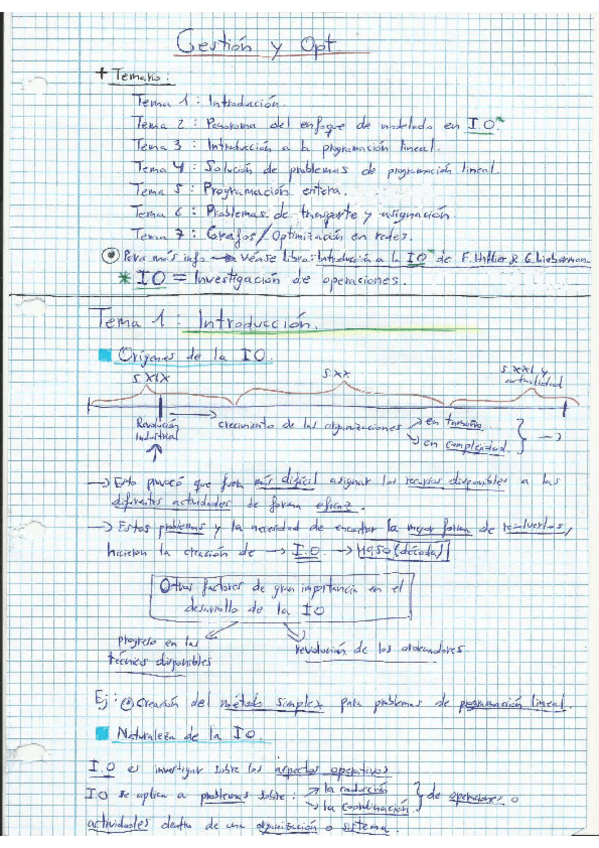 Gestión y Opt
+ Temario:
Tema 1: Introducción.
Tema 2: Panorama del enfoque de modelado en IO*
Tema 3: Introducción a la programación lineal.
Tema 4: Solución de problemas de programación lineal.
Tema 5: Programación entera.
Tema 6: Problemas de transporte y asignación
Tema 7: Grafos/Optimización en redes.
Para más info → Véase libro: Introducción a la IO de F. Hillier & G. Lieberman.
* IO = Investigación de operaciones.
Tema 1: Introducción.
Orígenes de la IO.
S. XIX
S. XX
S. XXI y actualidad
Revolución Industrial
crecimiento de las organizaciones
en tamaño.
en complejidad.
→ Esto provocó que fuera más difícil asignar los recursos disponibles a las
diferentes actividades de forma eficaz.
→ Estos problemas y la necesidad de encontrar la mejor forma de resolverlos,
hicieron la creación de → I.O. → 1950 (década)
Otros factores de gran importancia en el
desarrollo de la IO
progreso en las
técnicas disponibles
revolución de los ordenadores
Ej: Creación del método simplex para problemas de programación lineal.
Naturaleza de la IO.
I.O es investigar sobre los aspectos operativos.
IO se aplica a problemas sobre:
la conducción
la coordinación
de operaciones o
actividades dentro de una organización o sistema.